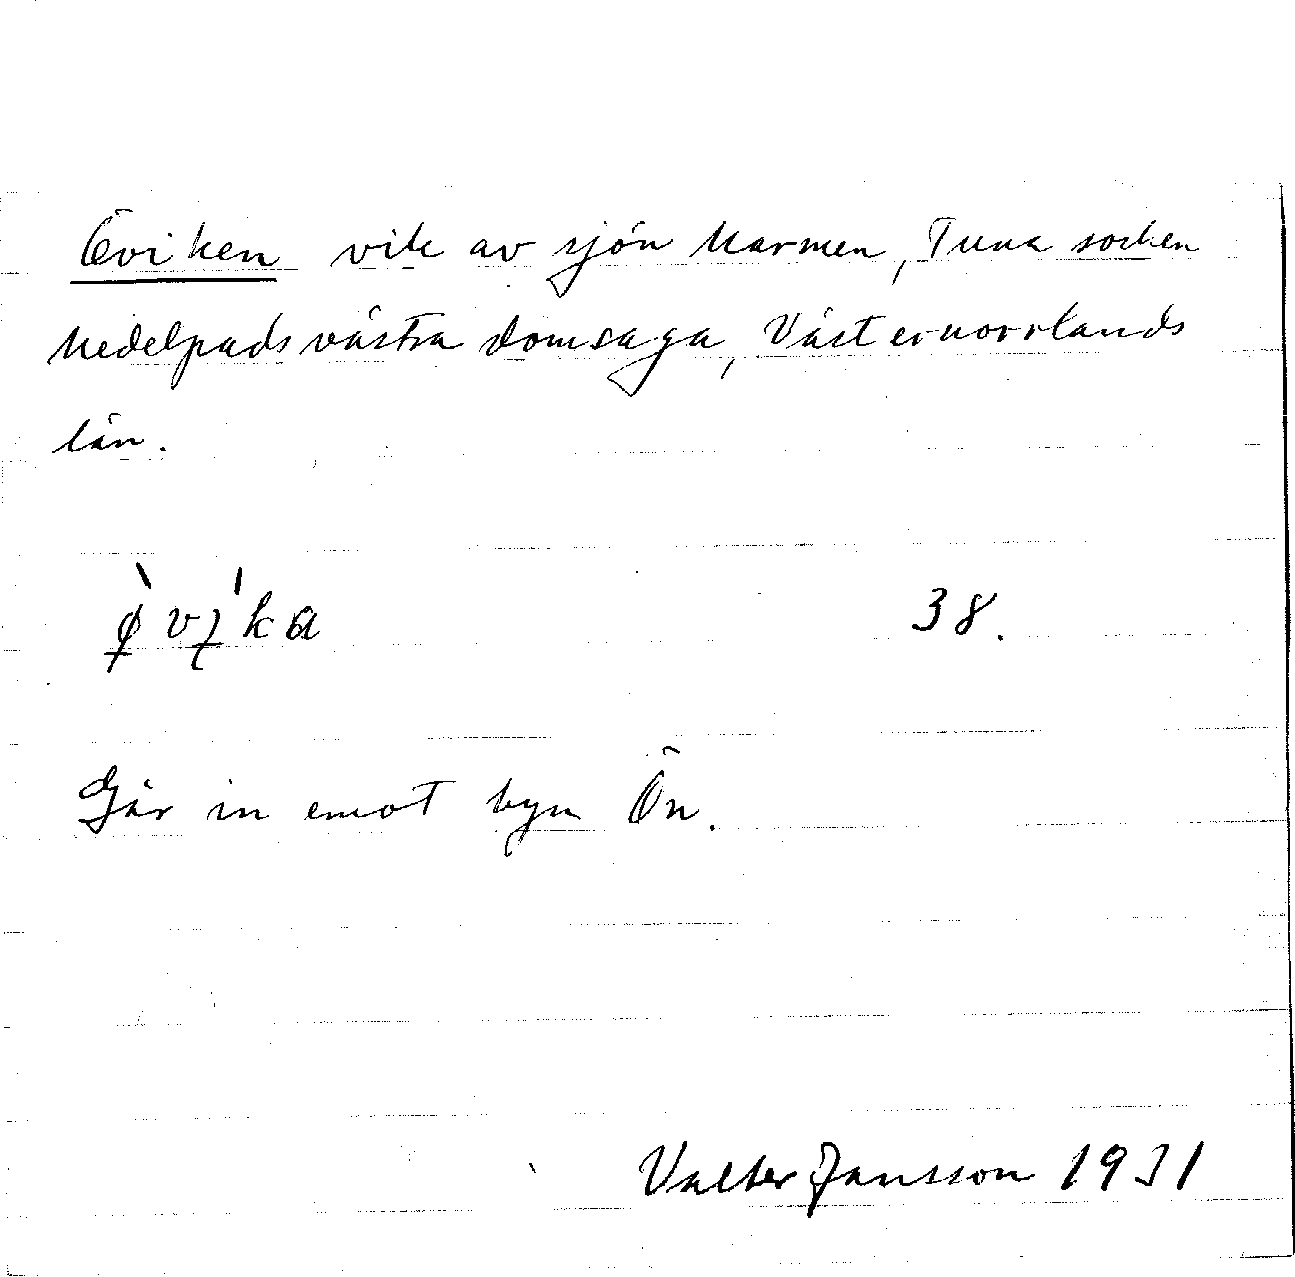 Öviken vik av sjön Marmen, Tuna socken
Medelpads västra domsaga, Västernorrlands
län.
38.
Går in emot byn Ön.
Valter Jansson 1931